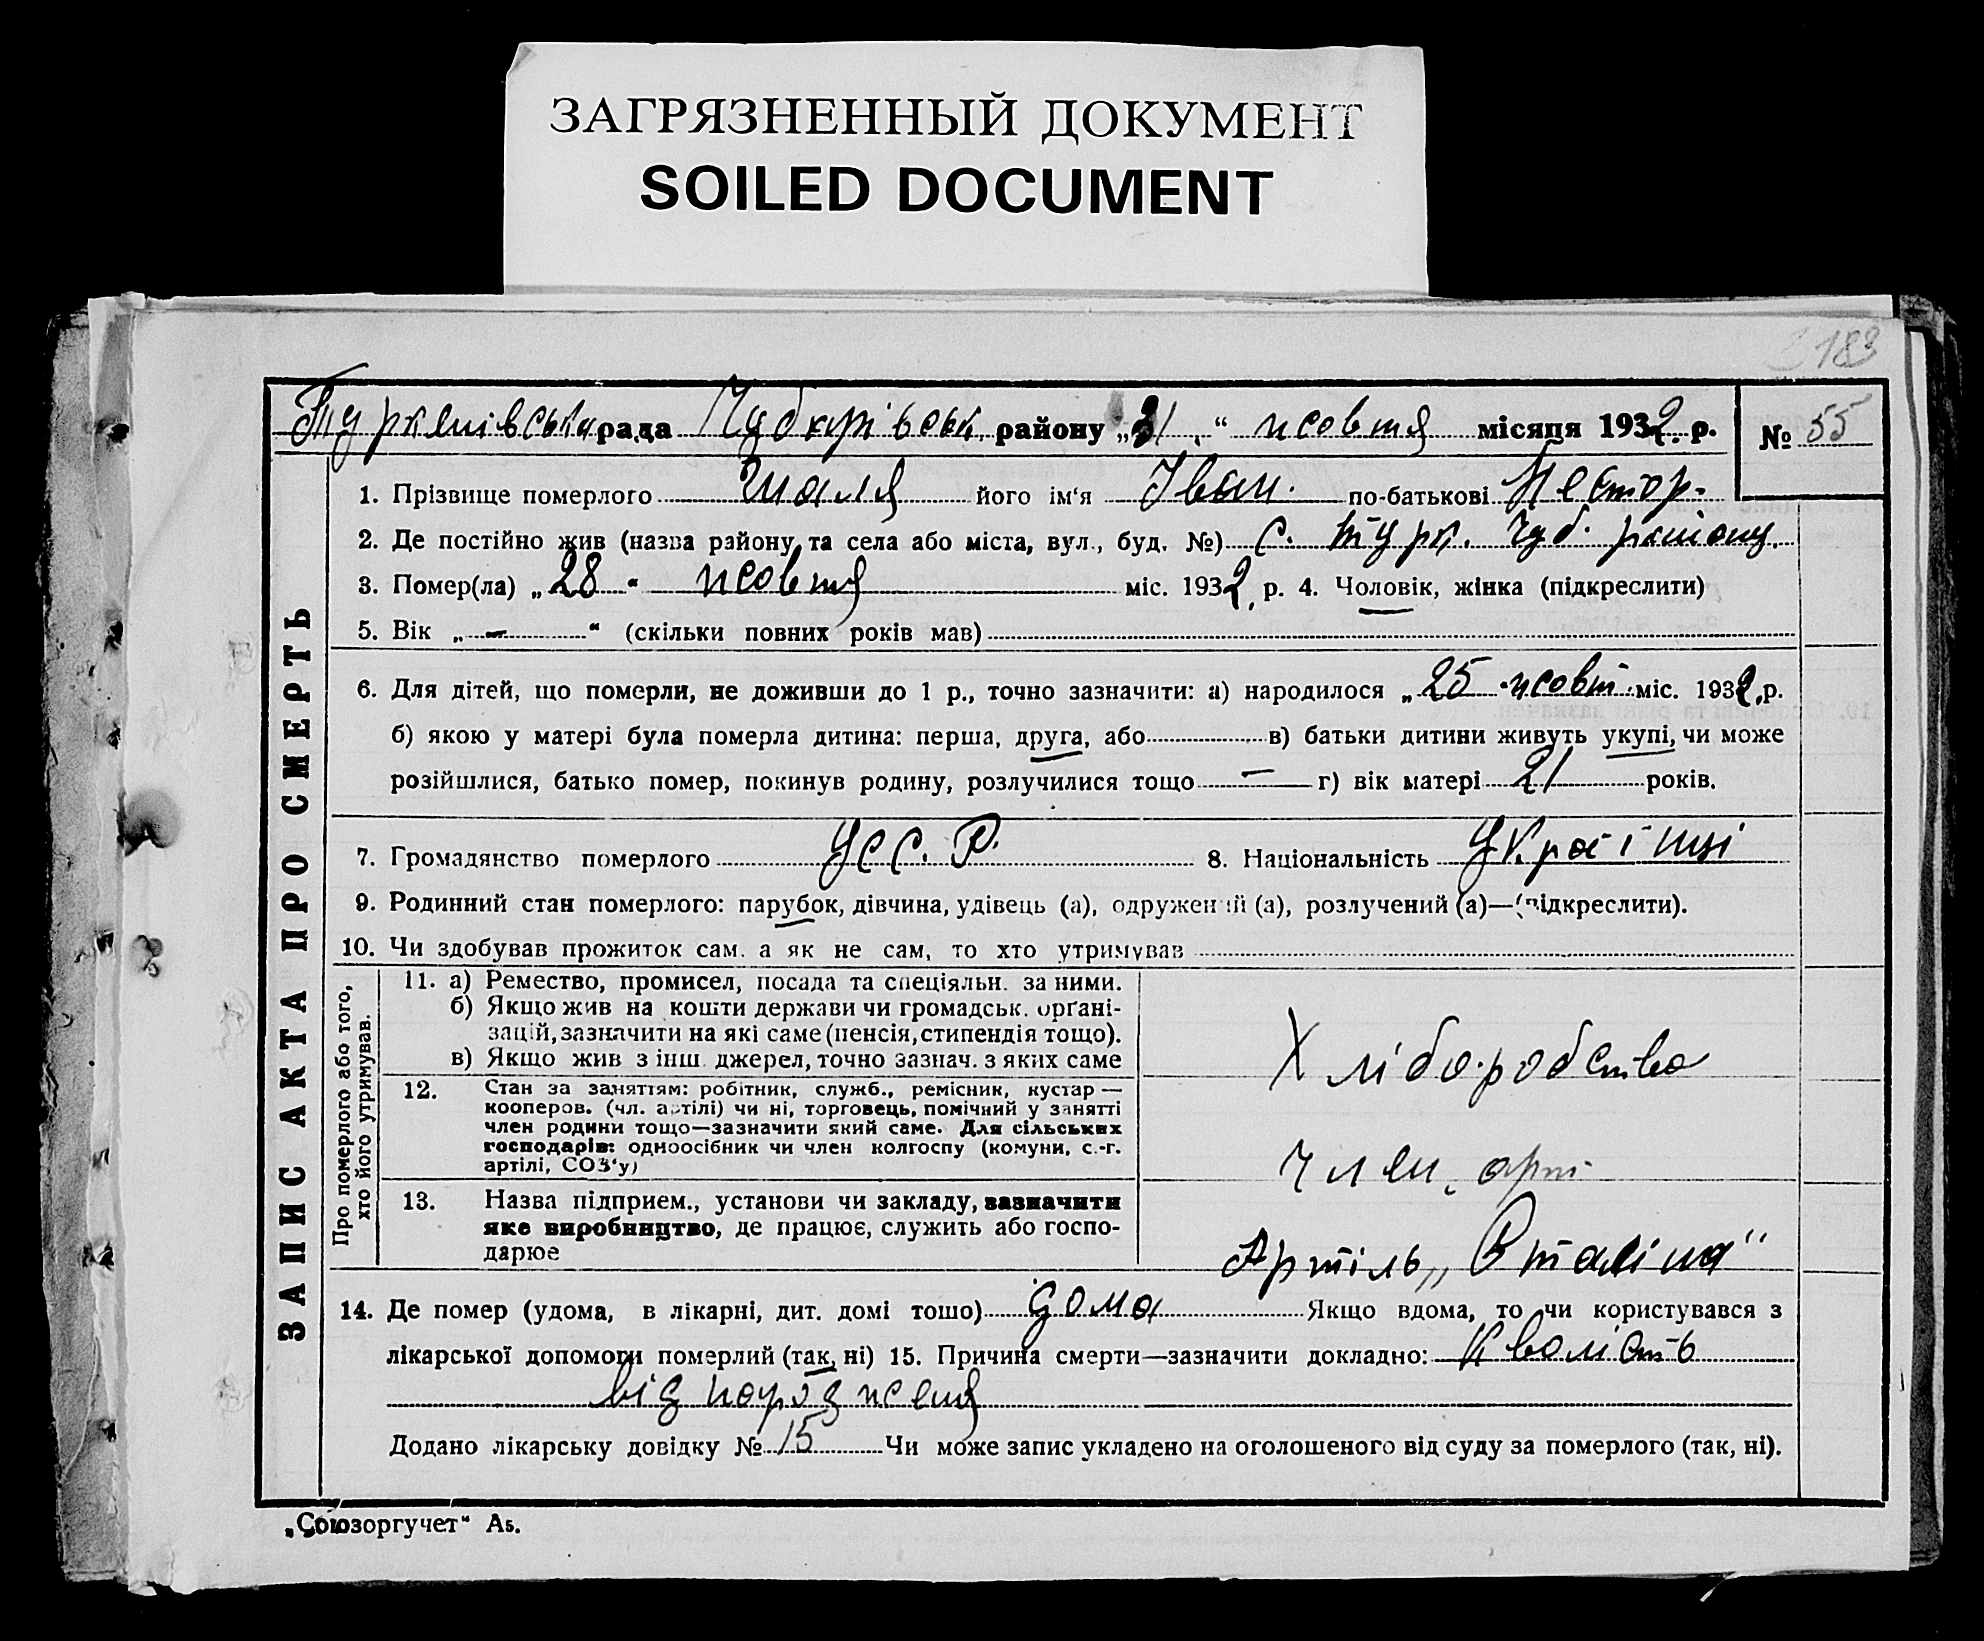 ЗАГРЯЗНЕННЫЙ ДОКУМЕНТ
SOILED DOCUMENT
183
рада району „31“ жовтня місяця 1932 р. № 55
ЗАПИС АКТА ПРО СМЕРТЬ
1. Прізвище померлого Шаля його ім‘я Іван. по-батькові Нестор.
2. Де постійно жив (назва району та села або міста, вул., буд. №) с. Турк. Чуб. району.
3. Помер(ла) „28“ жовтня міс. 1932 р. 4. Чоловік, жінка (підкреслити)
5. Вік „ — “ (скільки повних років мав)
6. Для дітей, що померли, не доживши до 1 р., точно зазначити: а) народилося „25 жовт. міс. 1932 р.
б) якою у матері була померла дитина: перша, друга, або в) батьки дитини живуть укупі, чи може
розійшлися, батько помер, покинув родину, розлучилися тощо — г) вік матері 21 років.
7. Громадянство померлого УСС.Р. 8. Національність Українці
9. Родинний стан померлого: парубок, дівчина, удівець (а), одружений (а), розлучений (а)—(підкреслити).
10. Чи здобував прожиток сам. а як не сам, то хто утримував
Про померлого або того,
хто його утримував.
11. а) Ремество, промисел, посада та спеціяльн. за ними.
б) Якщо жив на кошти держави чи громадськ. орґані-
зацій, зазначити на які саме (пенсія, стипендія тощо).
в) Якщо жив з інш. джерел, точно зазнач. з яких саме
Хліборобство
12. Стан за заняттям: робітник, служб., ремісник, кустар —
кооперов. (чл. артілі) чи ні, торговець, помічний у занятті
член родини тощо—зазначити який саме. Для сільських
господарів: одноосібник чи член колгоспу (комуни, с.-г.
артілі, СОЗ‘у)
Член. арт.
13. Назва підприєм., установи чи закладу, зазначити
яке виробництво, де працює, служить або госпо-
дарює
Артіль „Сталіна“
14. Де помер (удома, в лікарні, дит. домі тощо) дома Якщо вдома, то чи користувався з
лікарської допомоги померлий (так, ні) 15. Причина смерти—зазначити докладно: Кволість
від народження
Додано лікарську довідку № 15 Чи може запис укладено на оголошеного від суду за померлого (так, ні).
„Союзоргучет“ А5.